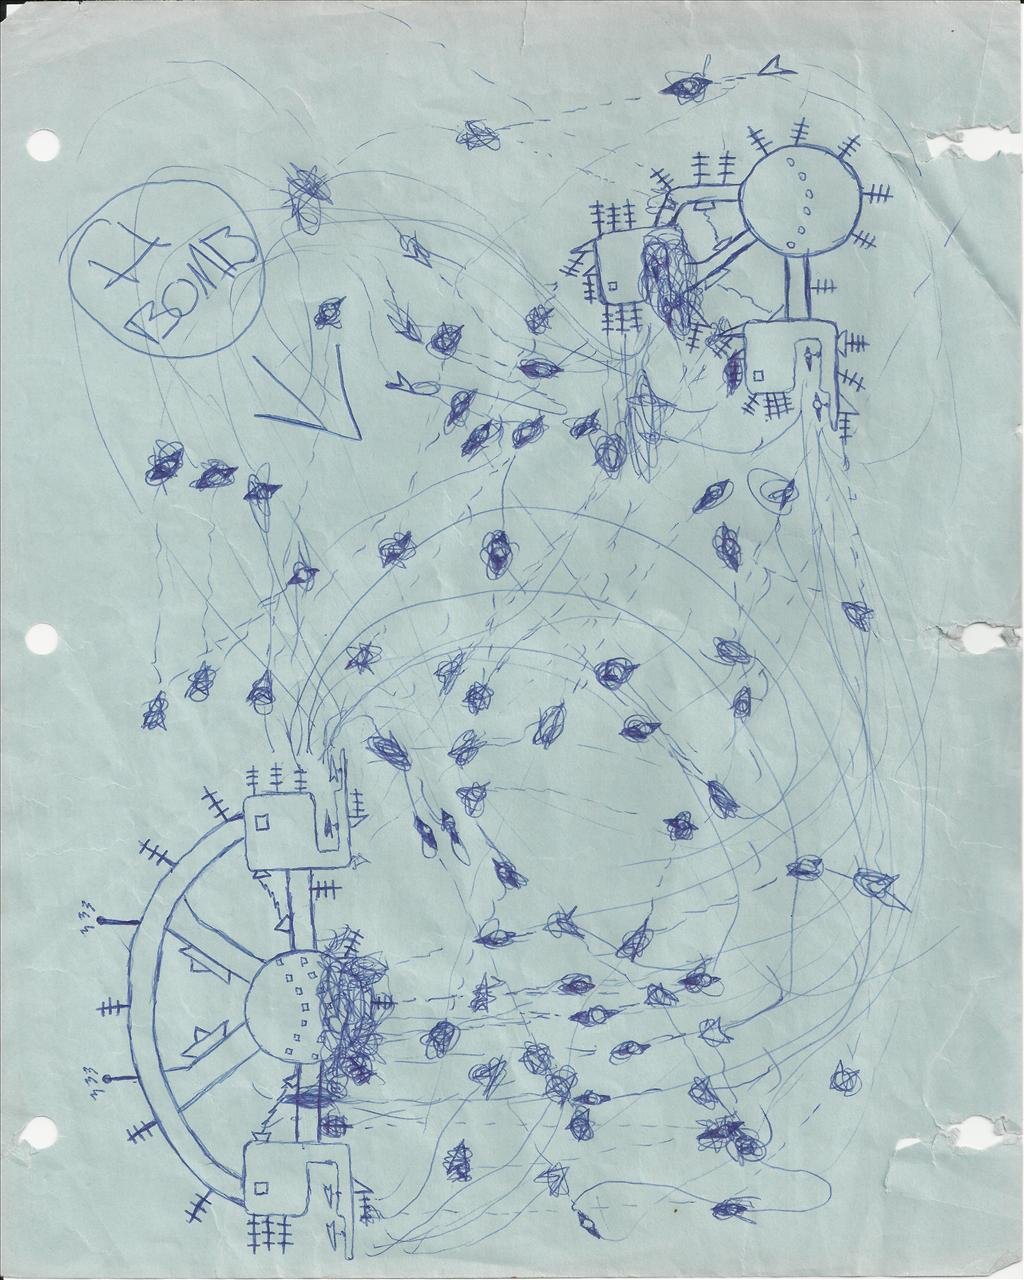 X
BOMB